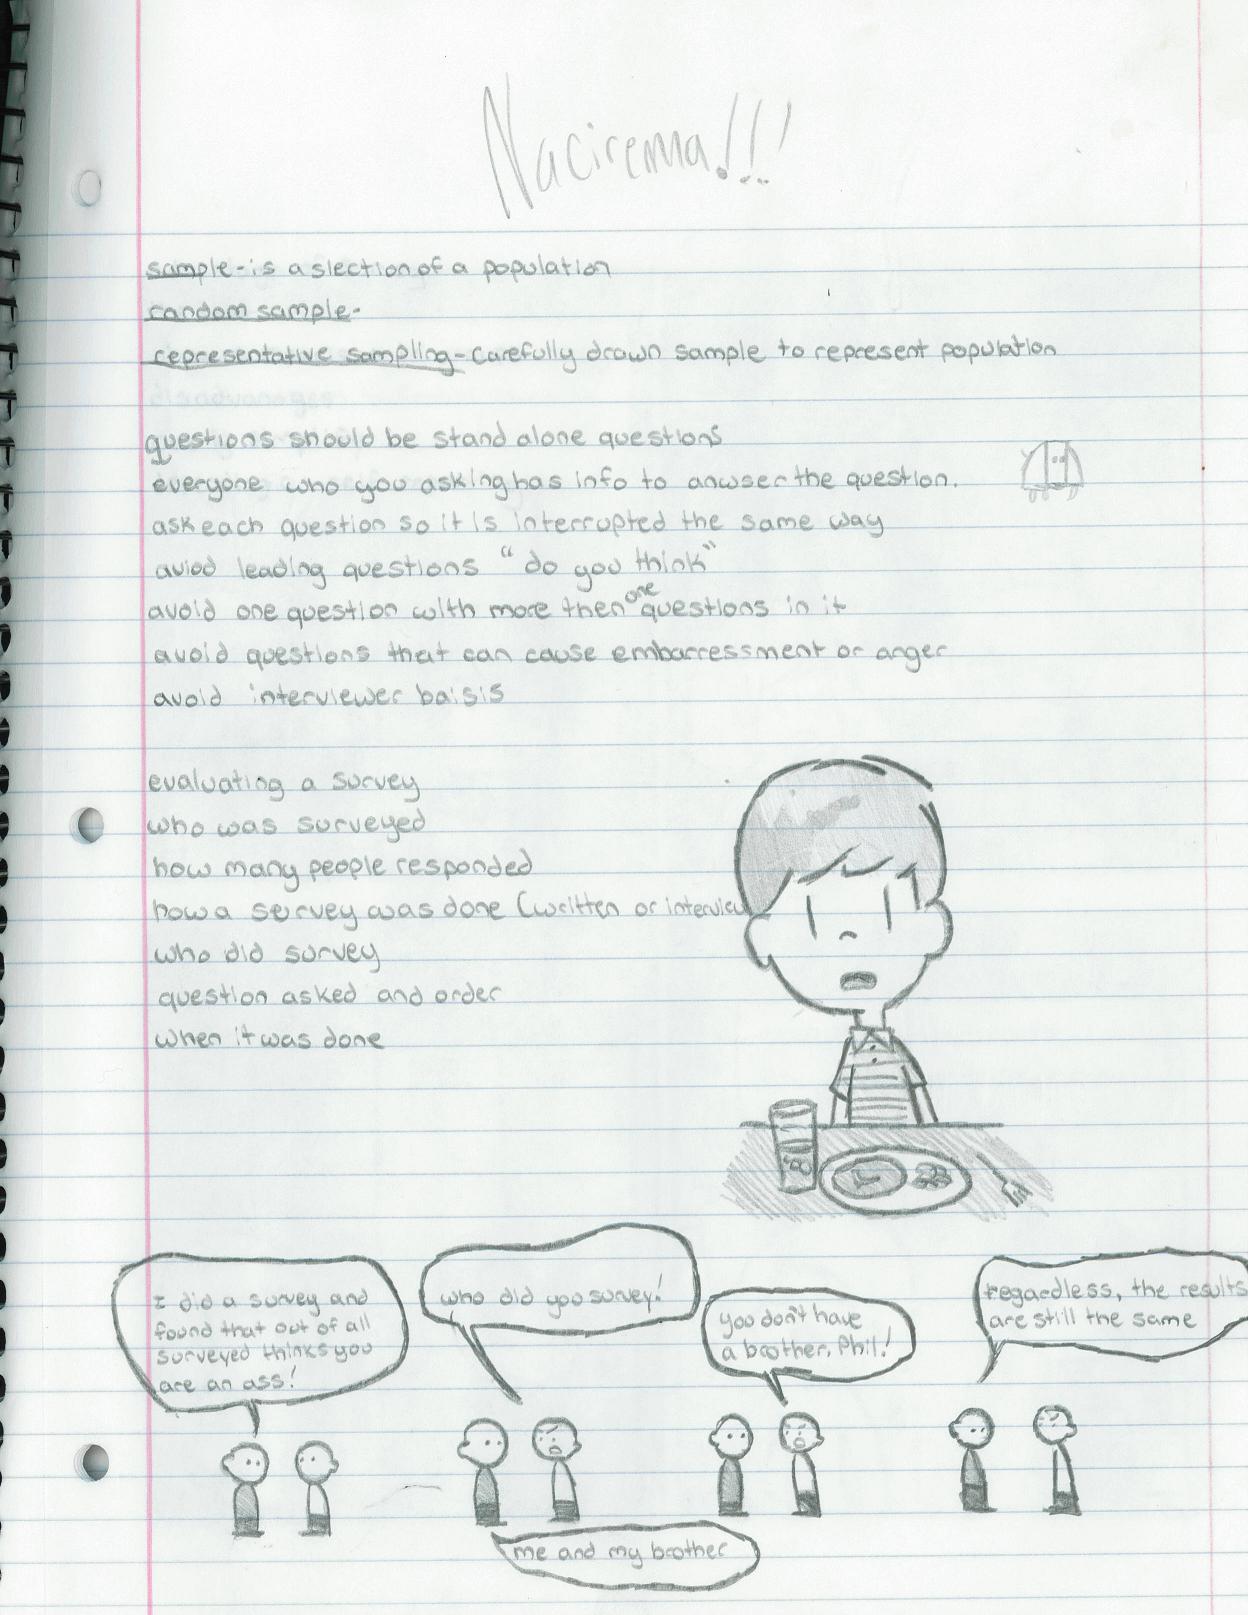 Nacirema!!!
sample-is a slection of a population
random sample-
representative sampling-carefully drawn sample to represent population
questions should be stand alone questions
everyone who you asking has info to anwser the question.
ask each question so it is interrupted the same way
aviod leading questions "do you think"
avoid one question with more then one questions in it
avoid questions that can cause embarressment or anger
avoid interviewer baisis
evaluating a survey
who was surveyed
how many people responded
how a servey was done (written or interview
who did survey
question asked and order
when it was done
I did a survey and
found that out of all
surveyed thinks you
are an ass!
who did you survey!
me and my brother
you don't have
a brother, Phil!
regardless, the results
are still the same